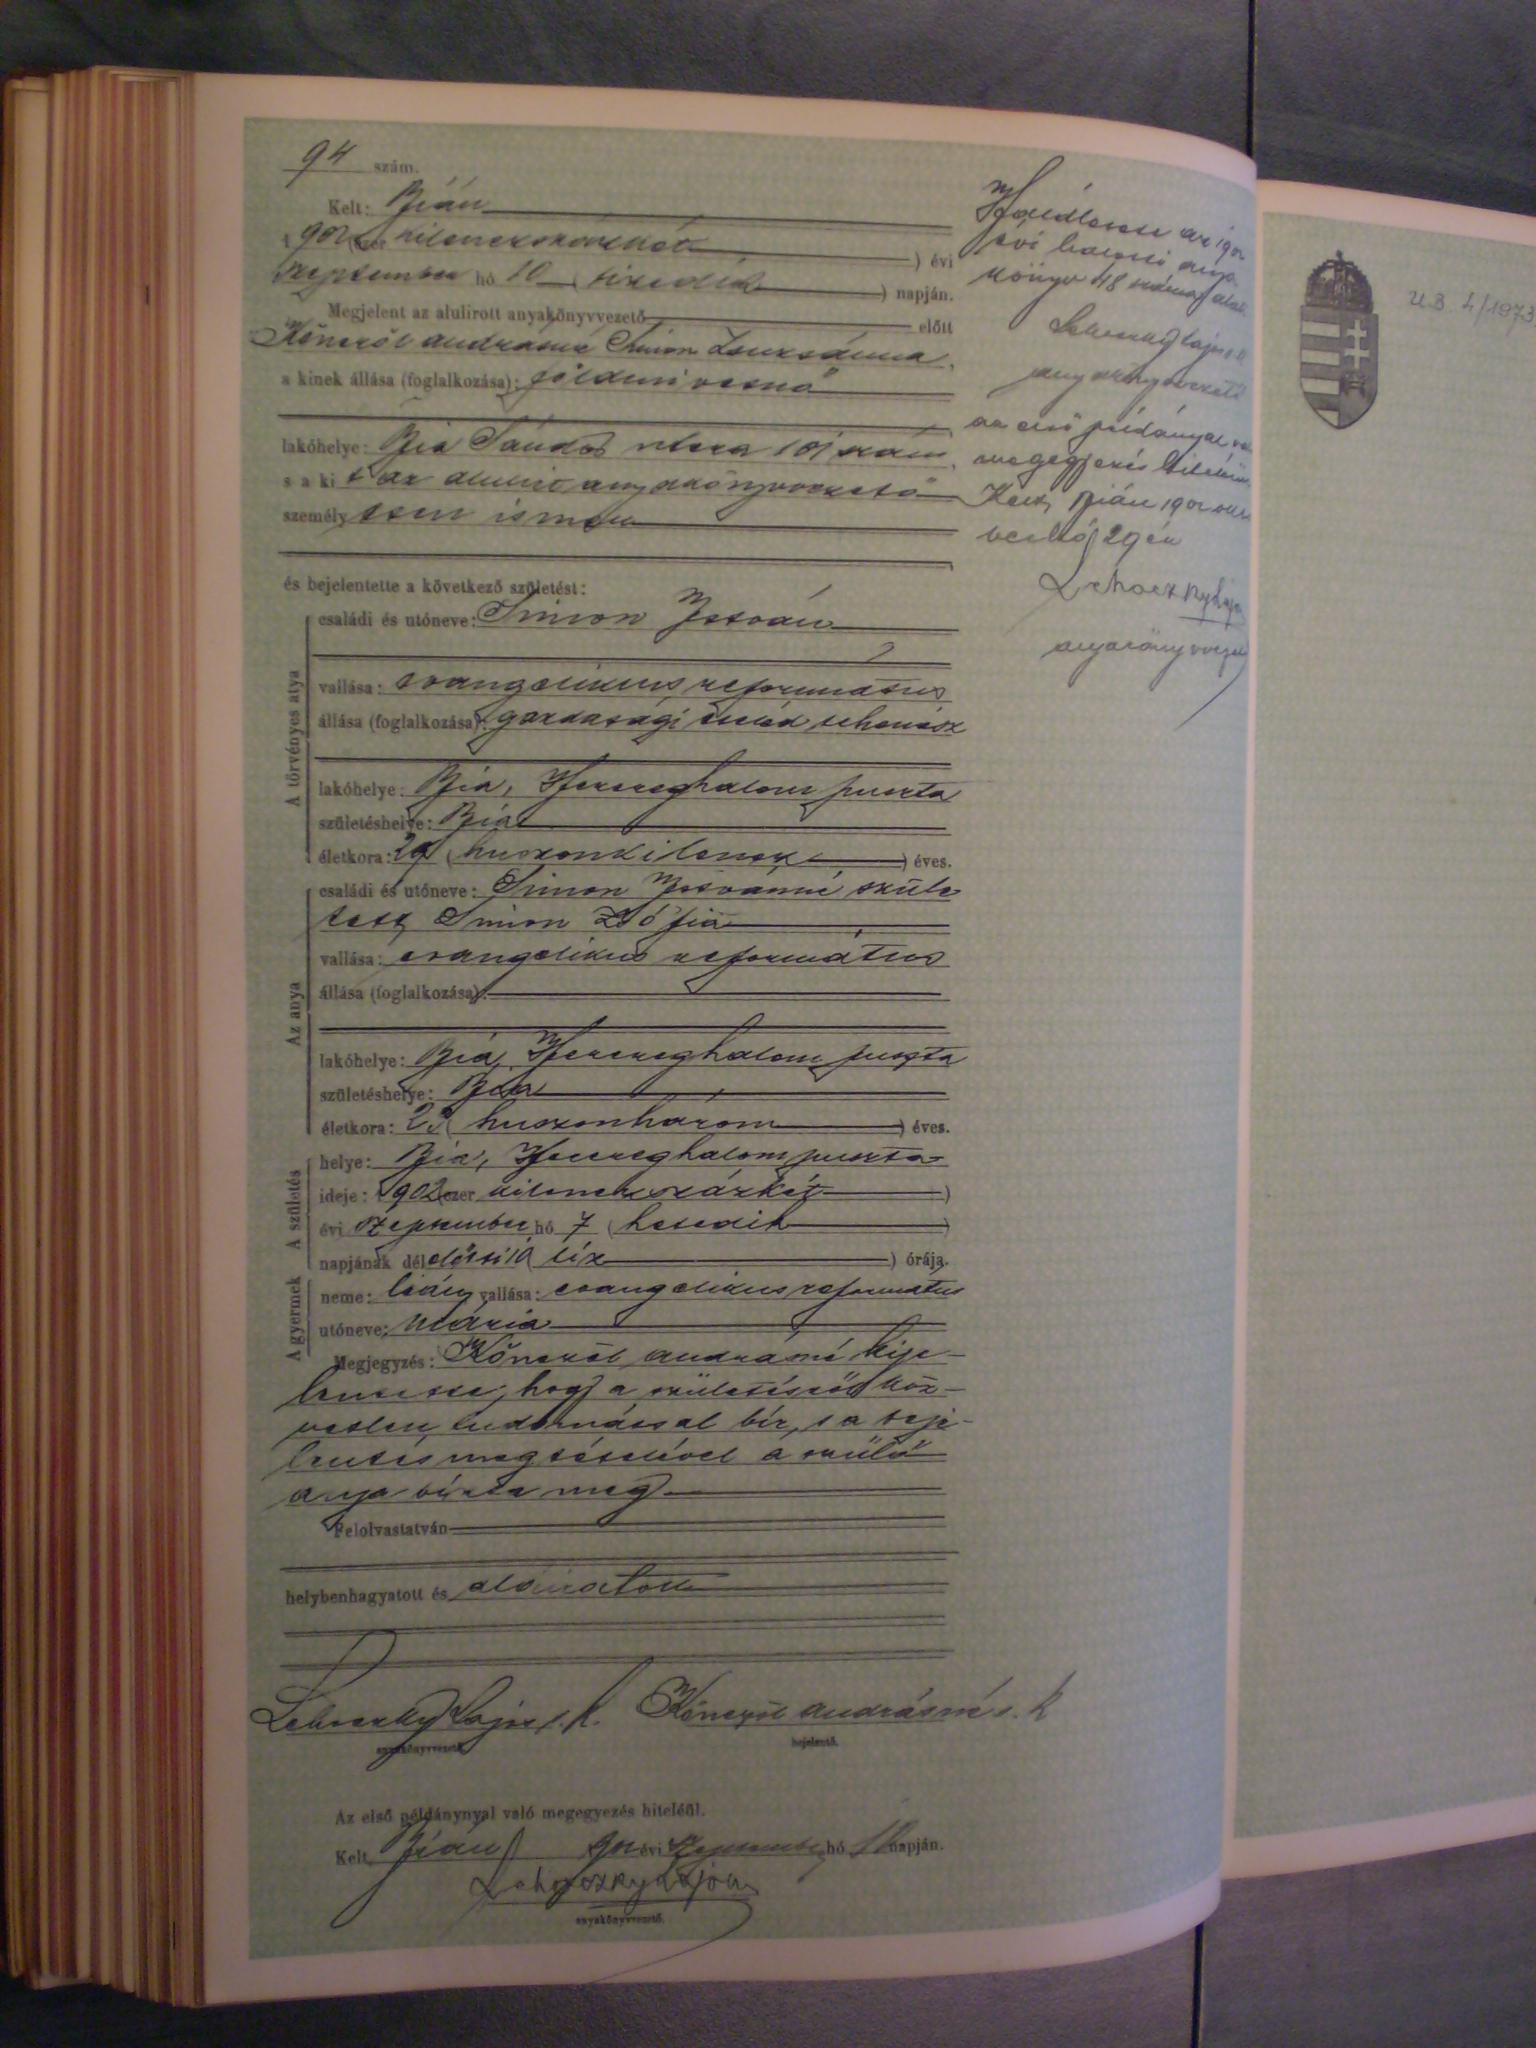 94 szám.
Kelt: Bián
1902 (ezer kilenczszázkét ) évi
szeptember hó 10 ( tizedik ) napján.
Megjelent az alulirott anyakönyvvezető előtt
Andrásné Simon Zsuzsánna,
a kinek állása (foglalkozása): földmivesnő
lakóhelye: Bia Sándor utcza 101 szám,
s a ki t az alulirt anyakönyvvezető
személy esen ismer
és bejelentette a következő születést:
A törvényes atya
családi és utóneve: Simon István
vallása: evangelikus reformatus
állása (foglalkozása): gazdasági cseléd tehenész
lakóhelye: Bia, Herczeghalom puszta
születéshelye: Bia
életkora: 29 ( huszonkilencz ) éves.
Az anya
családi és utóneve: Simon Istvánné szüle
tett Simon Zsófia
vallása: evangelikus református
állása (foglalkozása):
lakóhelye: Bia, Herczeghalom puszta
születéshelye: Bia
életkora: 23 ( huszonhárom ) éves.
A születés
helye: Bia, Herczeghalom puszta
ideje: 1902 (ezer kilenczszázkét )
évi szeptember hó 7 ( hetedik )
napjának dél előtti 10 ( tíz ) órája.
A gyermek
neme: leány vallása: evangelikus reformatus
utóneve: Mária
Megjegyzés: Andrásné kije-
lentette, hogy a születésről köz-
vetlen tudomással bír, s a beje-
lentés megtételével a szülő
anya bízta meg
Felolvastatván
helybenhagyatott és aláiratott
Lehoczky Lajos s. k. Andrásné s. k
anyakönyvvezető. bejelentő.
Az első példánynyal való megegyezés hiteléül.
Kelt Bián 902 évi szeptember hó napján.
Lehoczky Lajos
anyakönyvvezető.
az 1902
évi halotti anya
könyv 48 számaj alatt
Lehoczky Lajos s. k
anyakönyvvezető
az első példányal való
megegyezés hiteléül
Kelt, Bián 1902
29 én
Lehoczky Lajos
anyakönyvvezető
U.B. 4/1973